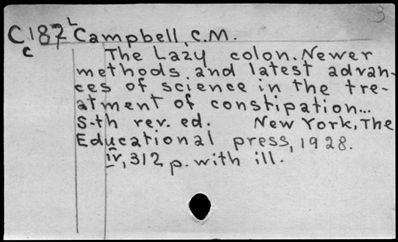 3
C187L Campbell, C.M.
c
The Lazy colon. Newer
methods and latest advan-
ces of science in the tre-
atment of constipation...
5-th rev. ed. New York, The
Educational press, 1928.
iv, 312 p. with ill.